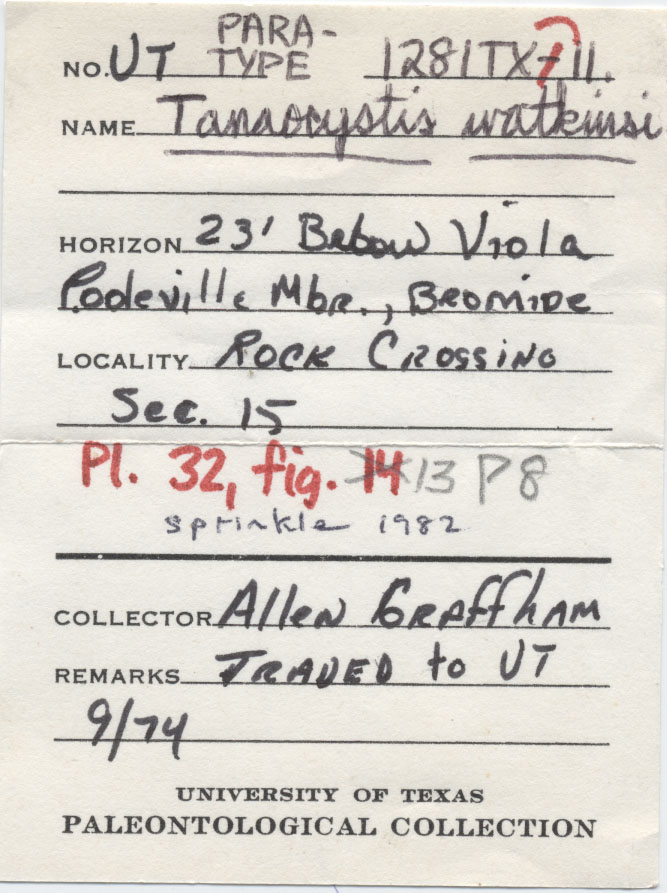 NO. UT PARA-
TYPE 1281TX-11.
NAME Tanaocystis watkinsi
HORIZON 23' Below Viola
Poolevillc Mbr., Bromide
LOCALITY Rock Crossing
Sec. 15
Pl. 32, fig. 14 13 P8
sprinkle 1982
COLLECTOR Allen Graffham
REMARKS TRADED to UT
9/74
UNIVERSITY OF TEXAS
PALEONTOLOGICAL COLLECTION